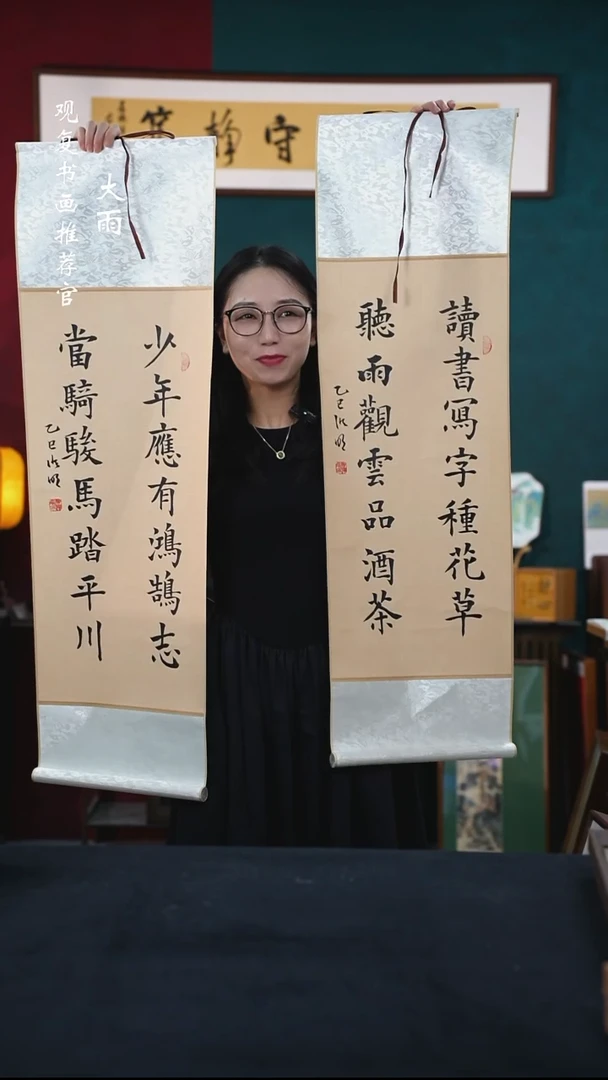 观复书画推荐官
大雨
守静笃
少年應有鴻鵠志
當騎駿馬踏平川
乙巳
讀書寫字種花草
聽雨觀雲品酒茶
乙巳